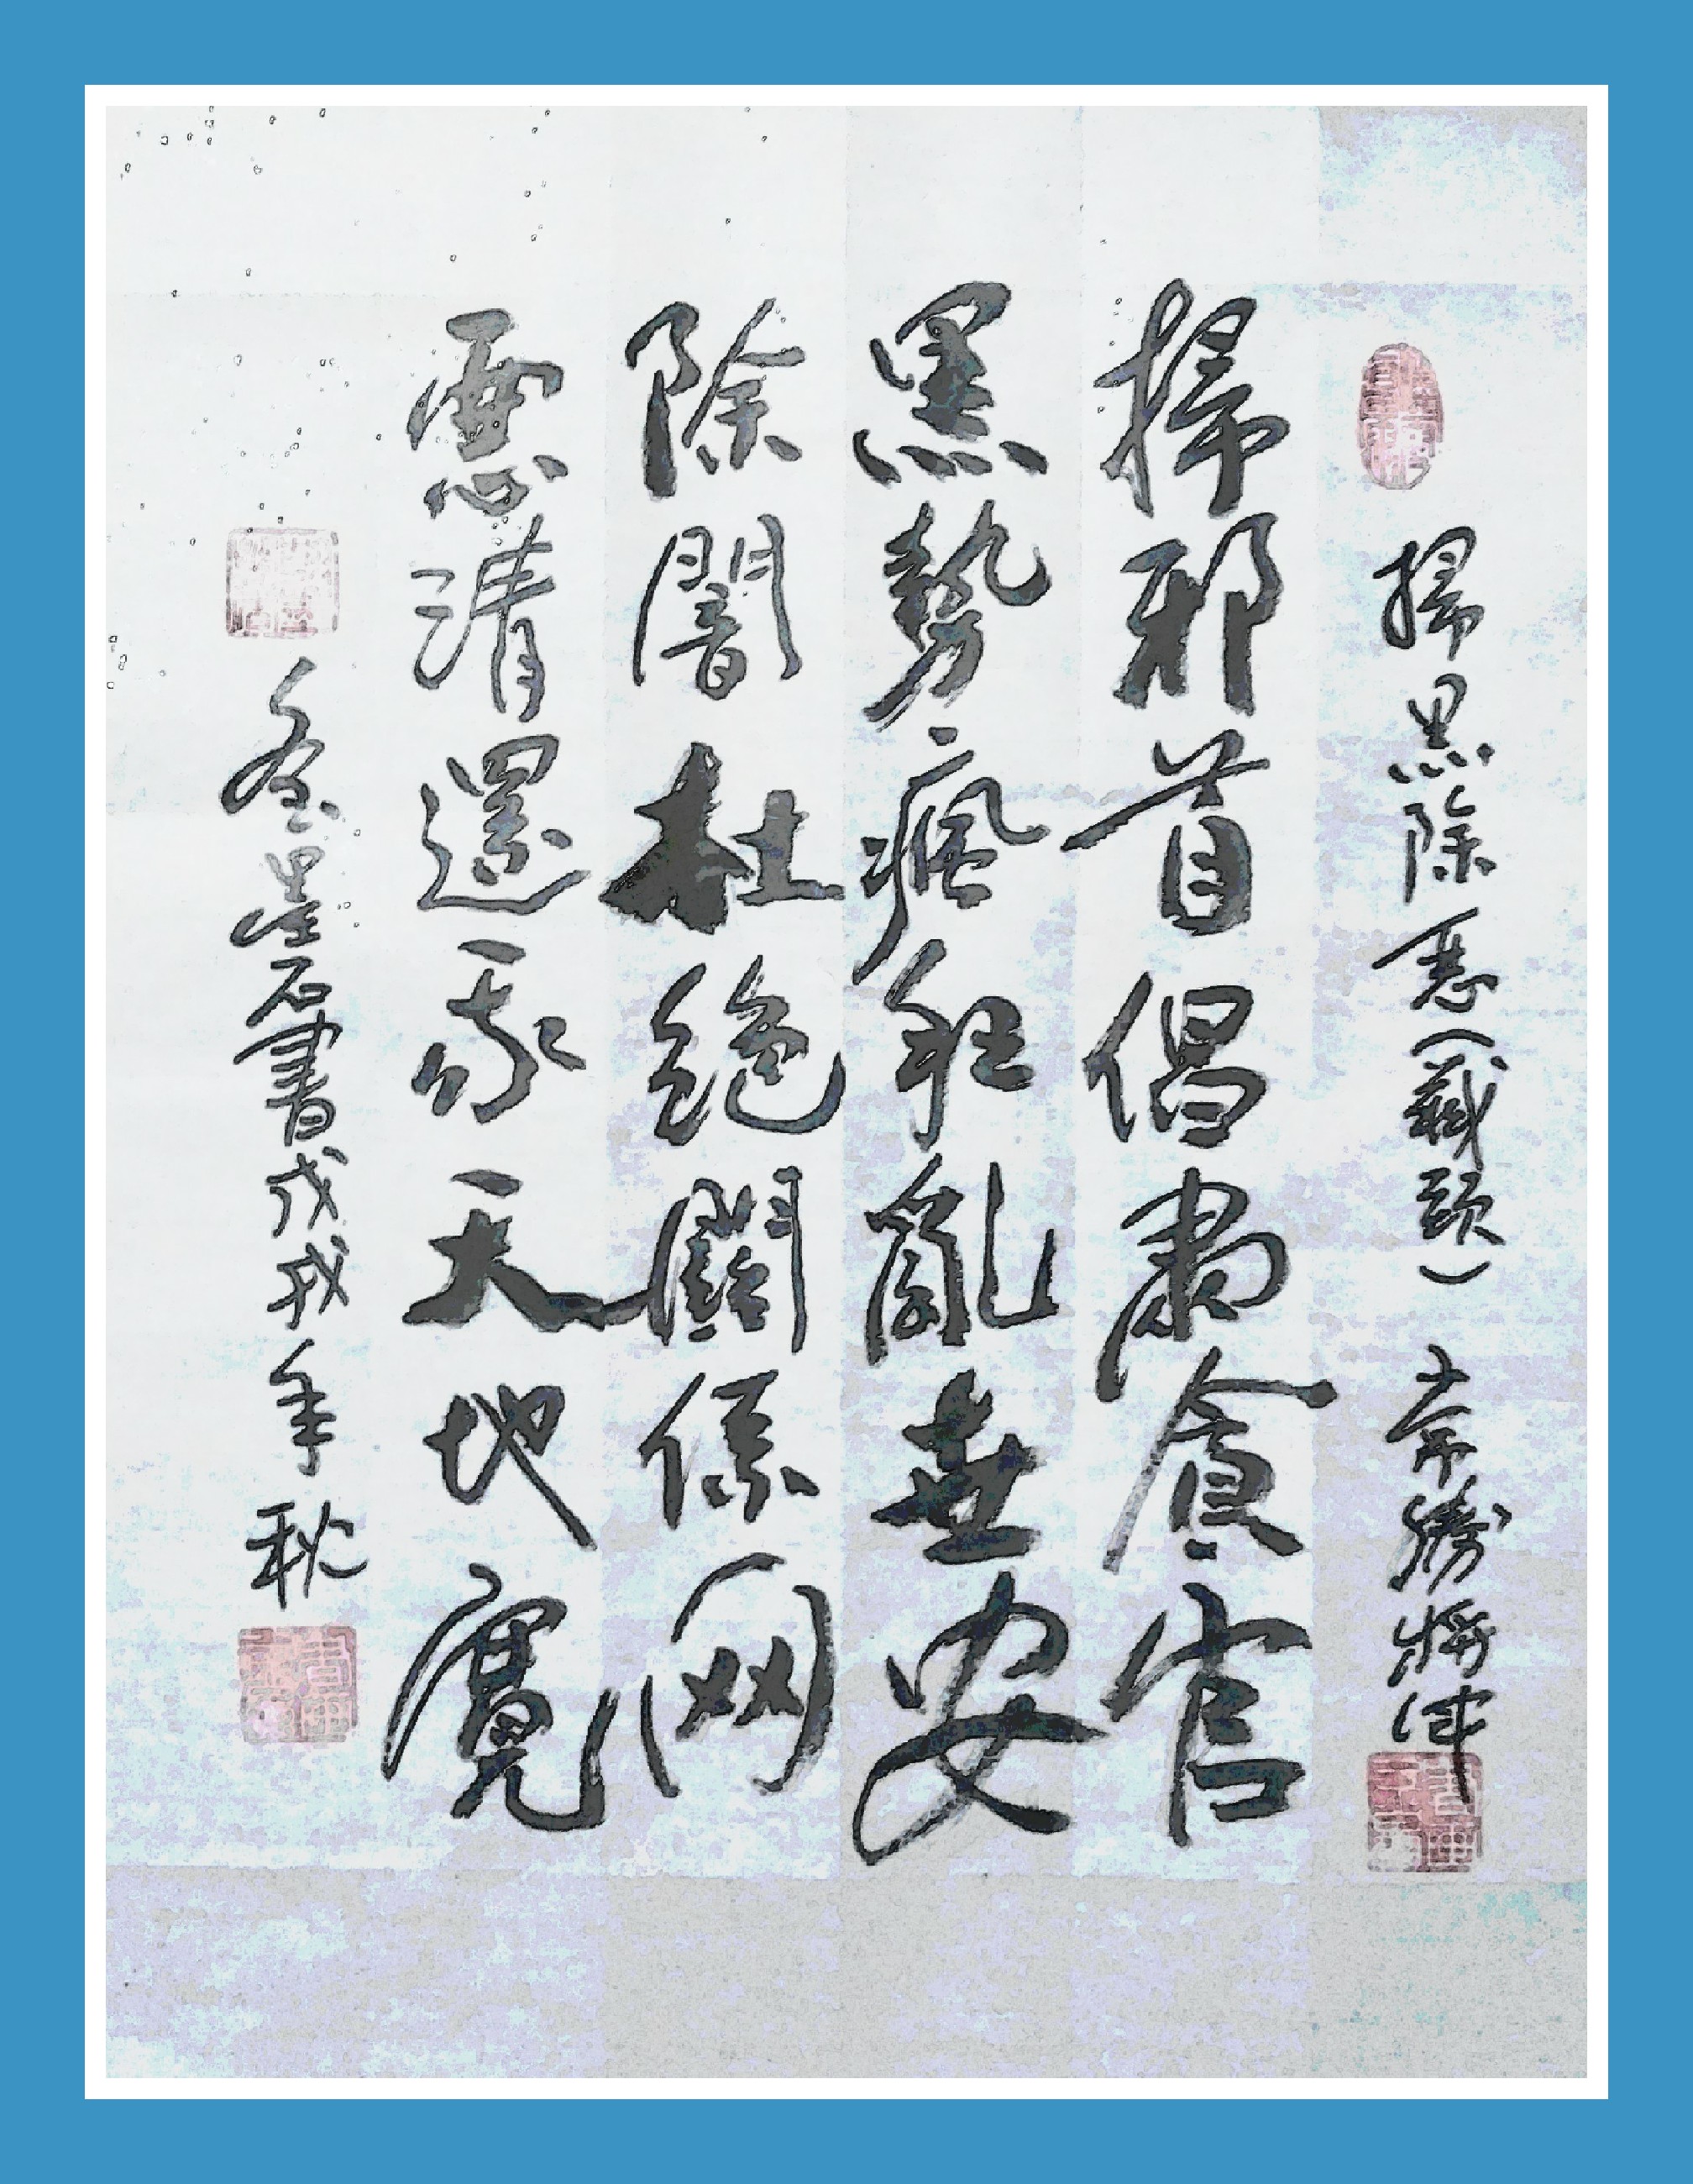 掃黑除惡(藏頭) 常勝將軍
掃邪首倡肅貪官
黑勢瘋狂亂世安
除闇杜絕關係网
惡清還我天地寬
墨石書戊戌年秋